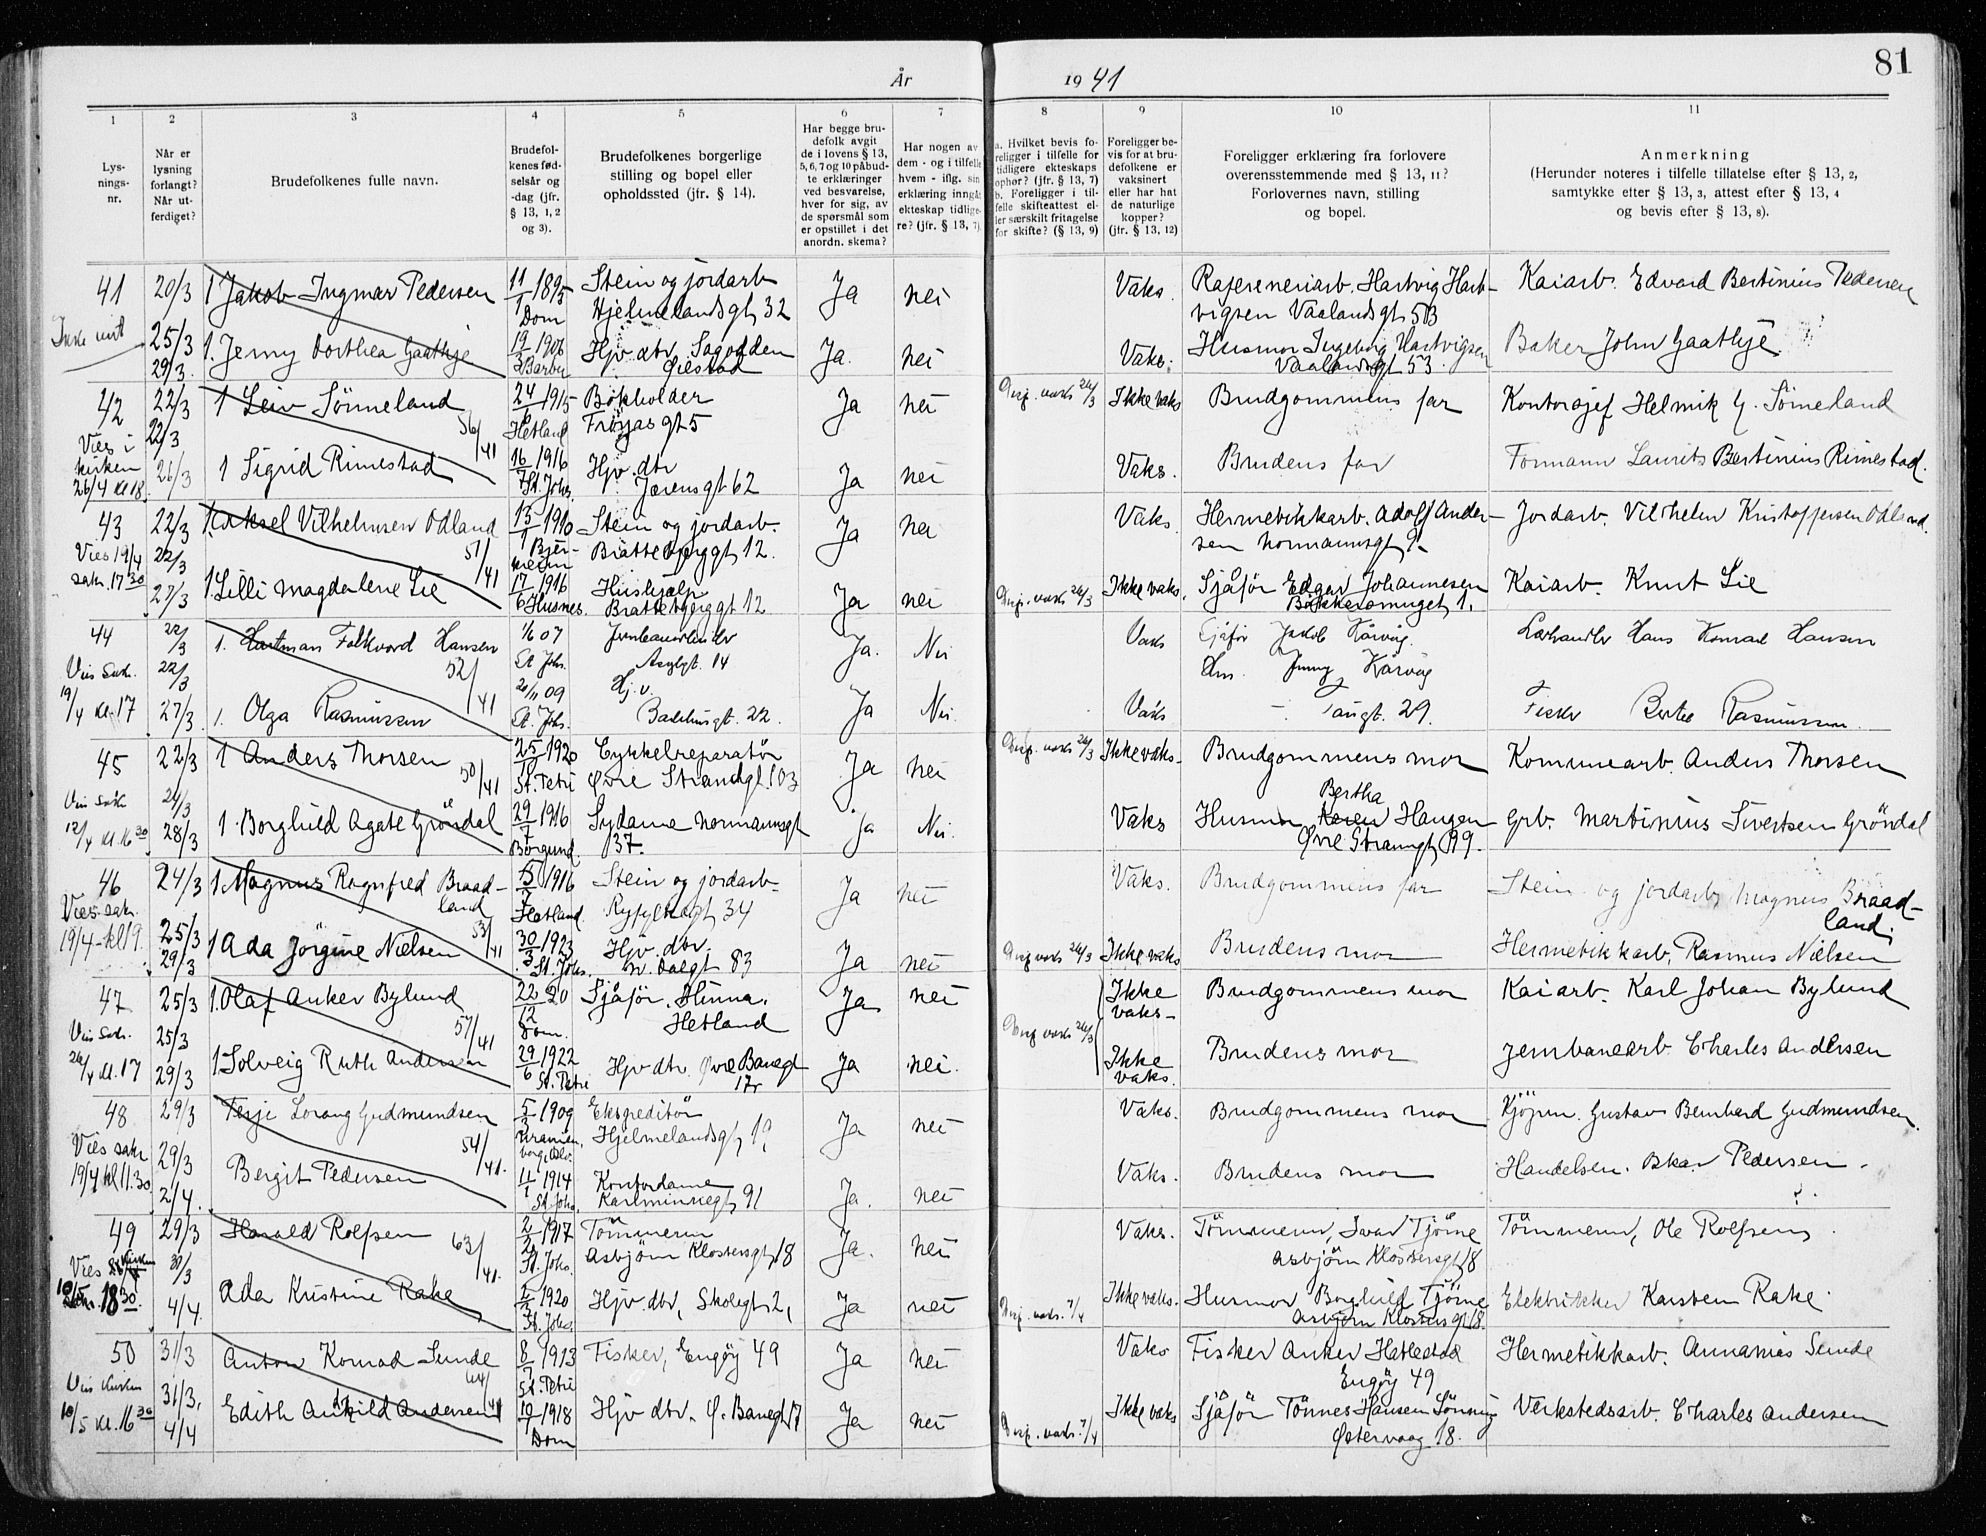 81
År 1941
1 2 3 4 5 6 7 8 9 10 11
Lys-
nings-
nr.
Når er
lysning
forlangt?
Når ut-
ferdiget?
Brudefolkenes fulle navn.
Brudefol-
kenes fød-
selsår og
-dag (jfr.
§ 13, 1, 2
og 3).
Brudefolkenes borgerlige
stilling og bopel eller
opholdssted (jfr. § 14).
Har begge bru-
defolk avgit
de i lovens § 13,
5, 6, 7 og 10 påbud-
te erklæringer
ved besvarelse,
hver for sig, av
de spørsmål som
er opstillet i det
anordn. skema?
Har nogen av
dem - og i tilfelle
hvem - iflg. sin
erklæring inngåt
ekteskap tidlige-
re? (jfr. § 13, 7)
a. Hvilket bevis fo-
religger i tilfelle for
tidligere ekteskaps
ophør? (jfr. § 13, 7)
b. Foreligger i til-
felle skifteattest el-
ler særskilt fritagelse
for skifte? (§ 13, 9)
Foreligger be-
vis for at bru-
defolkene er
vaksinert
eller har hat
de naturlige
kopper?
(jfr. § 13, 12)
Foreligger erklæring fra forlovere
overensstemmende med § 13, 11?
Forlovernes navn, stilling
og bopel.
Anmerkning
(Herunder noteres i tilfelle tillatelse efter § 13, 2,
samtykke efter § 13, 3, attest efter § 13, 4
og bevis efter § 13, 8).
41 20/3 1 Jakob Ingmar Pedersen 11/1 1895 Dom Stein og jordarb Hjelmelandsgt 32 Ja nei Vaks. Hartvig Hart-
vigsen Vaalandsgt 53 Kaiarb. Edvard Bertinius Pedersen
25/3 29/3 1. Jenny Dorthea Gaathje 1906 Hjv. dtr. Ja. nei Vaks. Husmor Ingeborg Hartvigsen
Vaalandsgt 53. Baker John Gaathje
42 22/3 1 Leiv Sönneland 24/6 1915 Hetland Bokholder
Fröyas gt 5 Ja nei Disp. vaks 26/3 Ikke vaks Brudgommens far Kontorsjef Helmik Sömeland
Vies i
kirken
26/4 kl 18. 22/3 26/3 56/41 1 Sigrid Rimestad 16/7 1916 St. Johs. Hjv. dtr
Jærensgt 62 Ja nei Vaks. Brudens far Formann Laurits Bertinius Rimestad.
43 22/3 1. Aksel Vilhelmsen Odland 1910 Bjer-
kreim Stein og jordarb.
Bratteberggt 12. Ja nei Vaks. Hermetikkarb. Adolf Ander-
sen Normannsgt 9. Jordarb. Vilhelm Kristoffersen Odland.
Vies 19/4
sakr. 17 30 22/3 27/3 51/41 1. Lilli Magdalene Lie 17/6 1916 Husnes. Hushjelp
Brattebjerggt 12. Ja nei Disp. vaks 26/3 Ikke vaks. Sjåfør Edgar Johannesen
Bakkesmuget 1. Kaiarb. Knut Lie
44 22/3 1. Hartman Falkvord Hansen 1/6 07 St Johs. Jernbanearbeider
Asylgt. 14 Ja. Nei Vaks Sjåfør Jakob Kårvåg.
Hm. Jenny Kårvåg Lærhandler Hans Konrad Hansen
Vies Sakr.
19/4 kl. 17 22/3 27/3 52/41 1. Olga Rasmussen 20/11 09 St. Johs. Hj. v.
Badehusgt. 22. Ja Nei. Vaks Taugt. 29. Fisker Bertel Rasmussen.
45 22/3 1 Anders Thorsen 1920 St. Petri Cykkelreparatør
Øvre Strandgt. 103 Ja nei Disp. vaks 26/3 Ikke vaks. Brudgommens mor Kommunearb. Anders Thorsen
Vies sakr
12/4 kl. 16 30 24/3 28/3 50/41 1. Borghild Agate Gröndal 29/7 1916 Borgund. Sydame Normannsgt
37. Ja Nei. Vaks Husmor Karen Bertha Haugen
Øvre Strandgt 99. Grb. Martinius Sivertsen Gröndal
46 24/3 1 Magnus Ragnfred Braad-
land 1916 Hetland. Stein og jordarb.
Ryfylkegt 34 Ja nei Vaks. Brudgommens far Stein og jordarb Magnus Braad-
land.
Vies sakr.
19/4 - kl 19. 25/3 29/3 53/41 1 Ada Jörgine Nielsen 30/3 1923 St. Johs. Hjv. dtr.
N. Dalgt 83 Ja nei Disp vaks 26/3 Ikke vaks Brudens mor Hermetikkarb. Rasmus Nielsen
47 25/3 1. Olaf Anker Bylund 22/12 20 Dom. Sjåför, Hinna,
Hetland Ja nei Ikke
vaks. Brudgommens mor Kaiarb. Karl Johan Bylund
Vies Sakr.
26/4 kl. 17 25/3 29/3 57/41 1 Solveig Ruth Andersen 29/6 1922 St. Petri Hjv dtr. Øvre Banegt
17 Ja nei. Disp vaks 26/3 Ikke
vaks. Brudens mor Jernbanearb. Charles Andersen
48 29/3 Terje Lorang Gudmundsen 1909 Ekspreditör
Hjelmelandsgt Ja nei Vaks. Brudgommens mor Kjöpm. Gustav Bernhard Gudmundsen.
Vies sakr
19/4 kl 11.30 29/3 2/4. 54/41. Bergit Pedersen 1914 St Johs. Kontordame
Karlminnegt 91 Ja. nei Vaks. Brudens mor Handelsm. Oskar Pedersen.
49 29/3 Harald Rolfsen 1917 St. Johs. Tömmerm
Asbjörn Klostersgt 18 Ja. nei Vaks. Tömmerm, Ivar Tjörne
Asbjörn Klostersgt 18 Tömmerm, Ole Rolfsen.
Vies
18 30. 4/4. 63/41. Ada Kristine Rake 1920 St. Johs. Hjv dtr, Skolegt 2, Ja nei Disp. vaks. 7/4 Ikke vaks. Husmor Borghild Tjörne
Asbjörn Klostersgt 18. Elektriker Karsten Rake.
50 31/3 Anton Konrad Sunde 8/7 1913 St. Petri Fisker, Engöy 49 Ja nei Vaks Fisker Anker Hatlestad
Engöy 49 Hermetikkarb. Annanias Sunde
Vies Kirken
10/5 kl. 16 30 31/3, 4/4 64/41 Edith Andersen 1918 Dom Hjv dtr. Ø. Banegt 17 Ja nei Disp. vaks. 7/4 Ikke vaks Sjåför Tönnes Hansen Sönning
Østervaag 18. Verkstedsarb. Charles Andersen